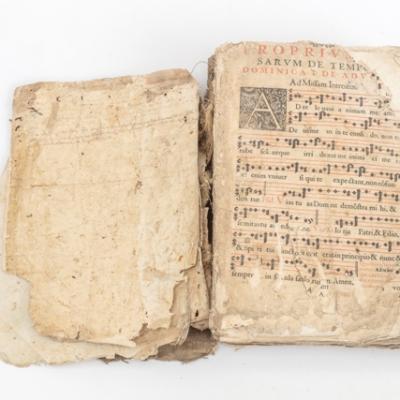 PROPRIVM
SARVM DE TEMPO
DOMINICA I. DE ADV
Ad Missam Introitus.
A D te leuaui a nimam me am:
De us me us in te confi do, non e
rube scã, neque irri de ant me inimi ci me i
et enim vniuer si qui te expectant, non cõfun
den tur. Vias tuas Domine demõstra mi hi, &
semitas tuas Glo ria Patri, & Filio,
& Spi ri tui sancto sicut erat in principio & nunc &
semper in sæcula sæculo rum Amen.